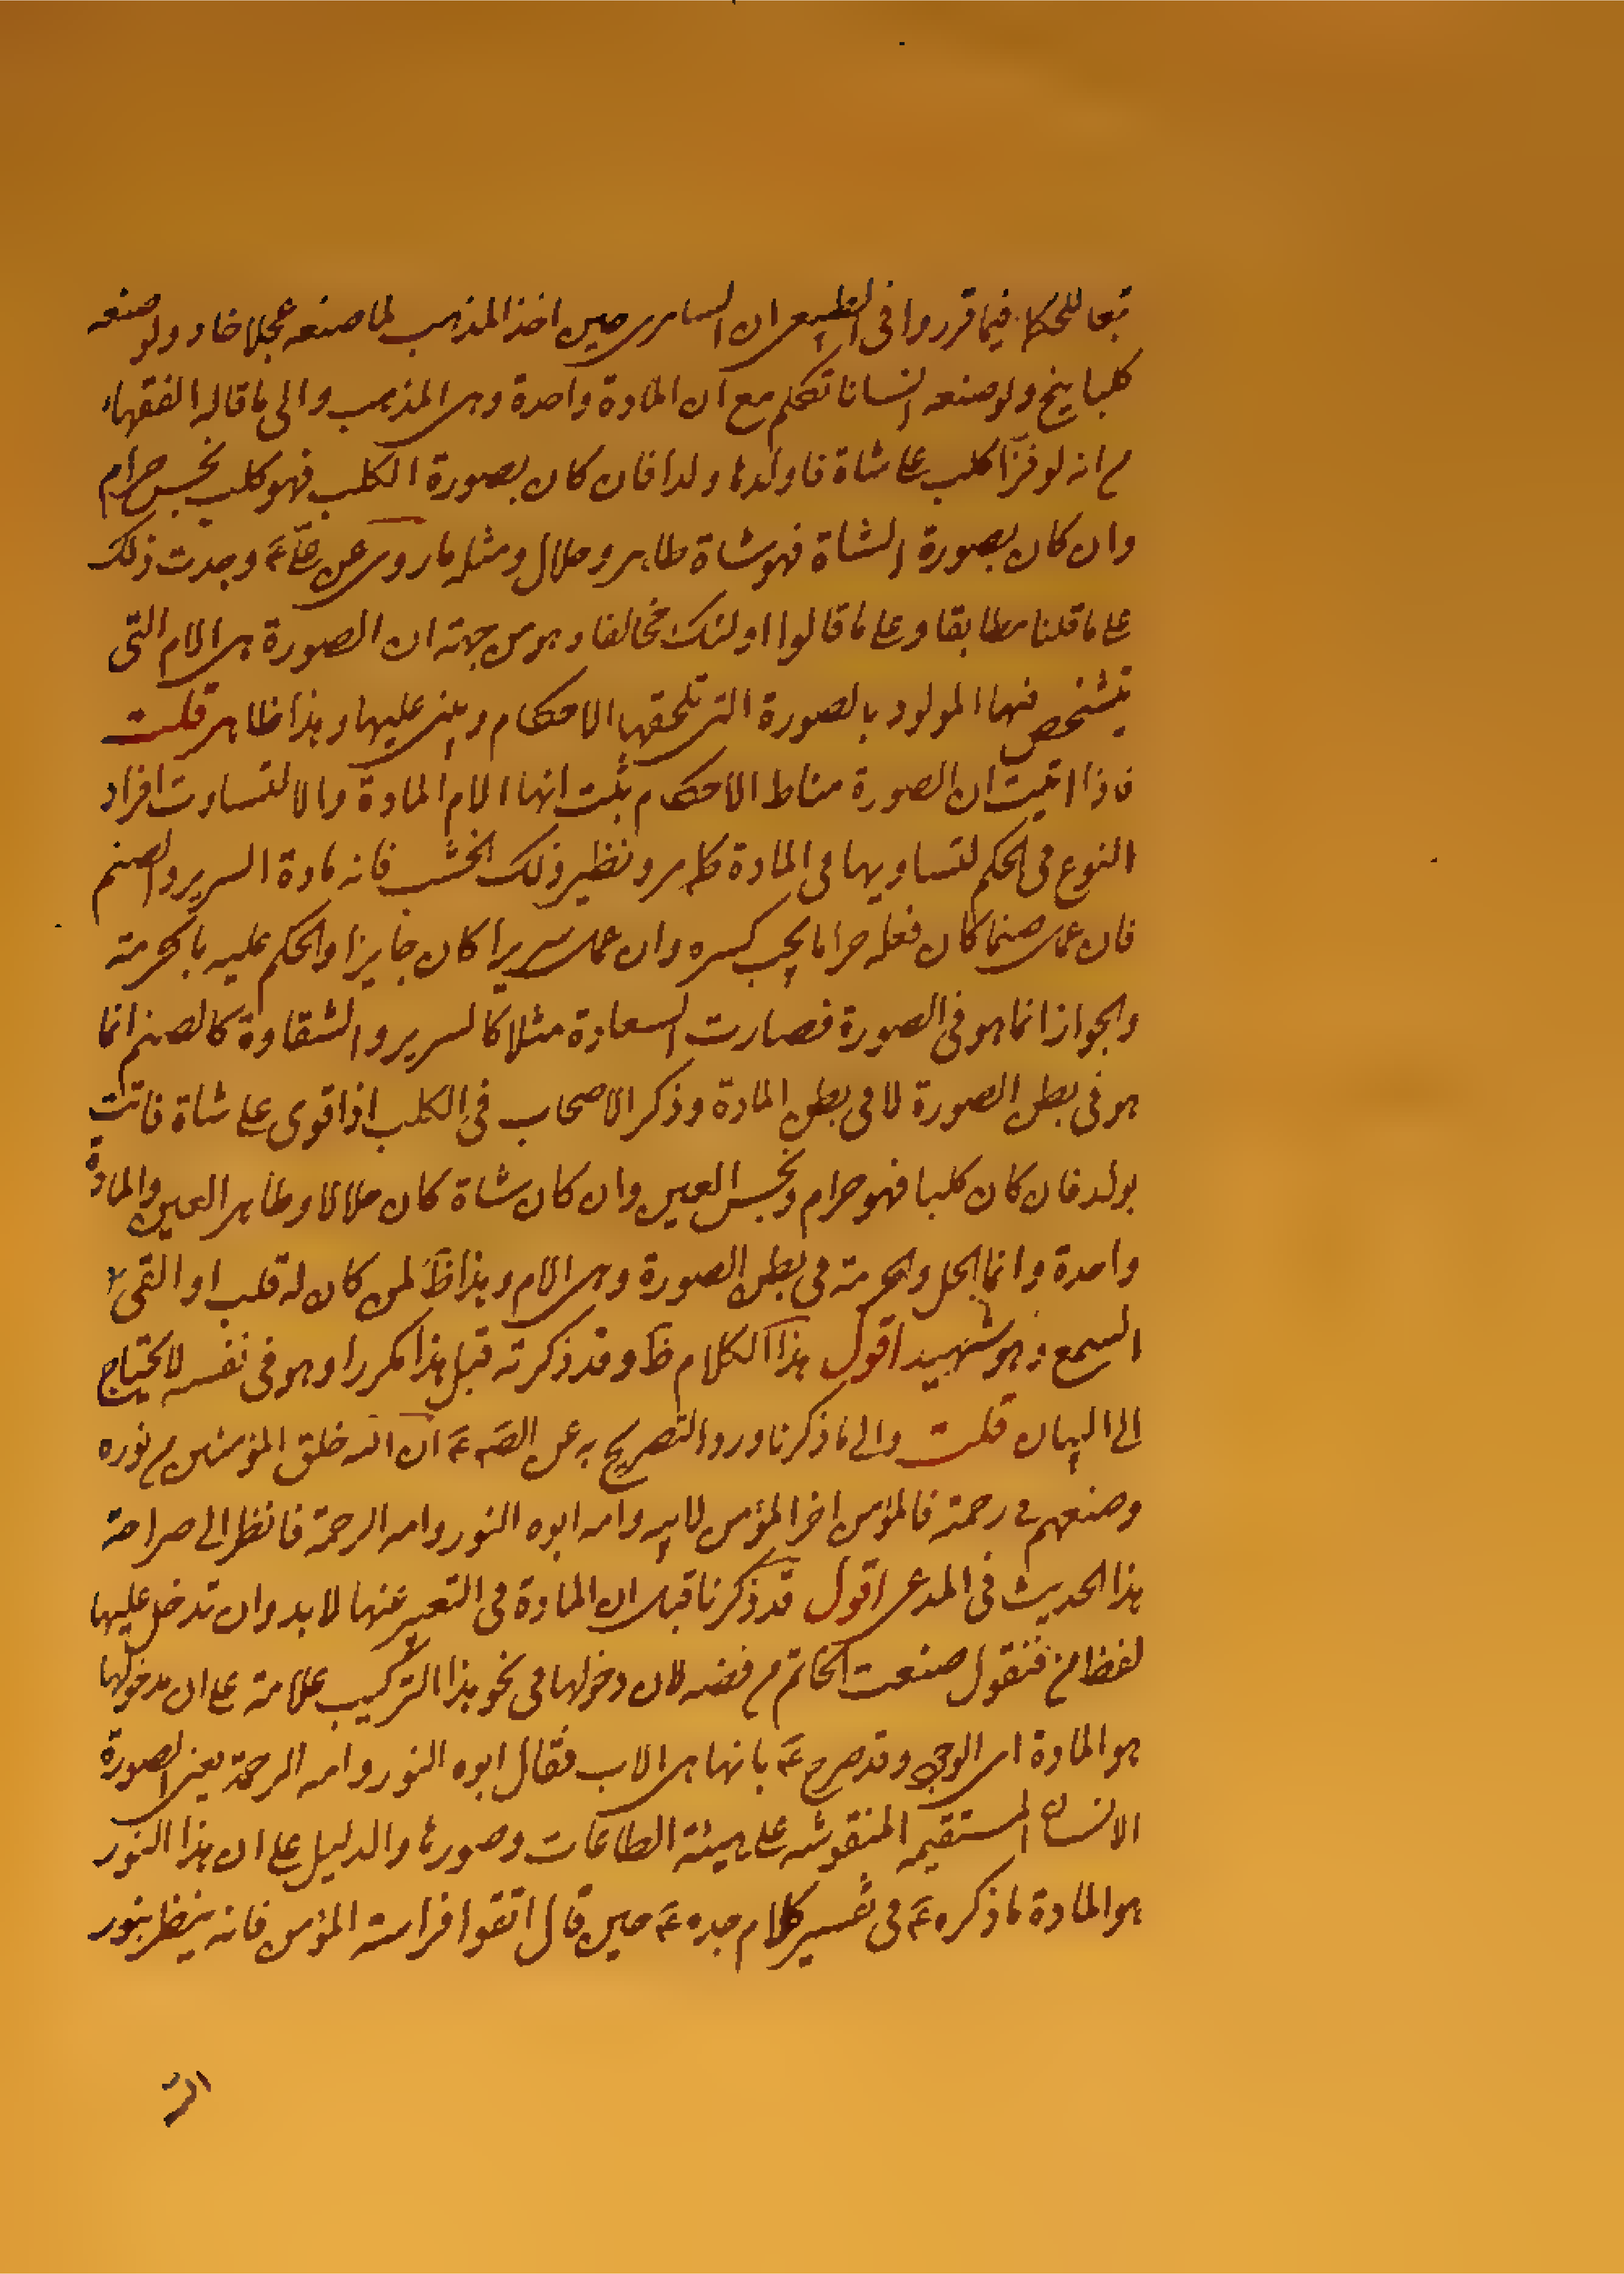 تبعا للحكماء فيما قرروا في الطبيعى ان السامرى حين اخذ الذهب لما صنعه عجلا خار ولو صنعه
كلبا ينبح ولو صنعه انسانا تكلم مع ان المادة واحدة وهى الذهب والى ما قاله الفقهاء
م انه لو نزا كلب على شاة فاولدها ولدا فان كان بصورة الكلب فهو كلب نجس حرام
وان كان بصورة الشاة فهو شاة طاهر وحلال ومثله ما روى عن علىّ ع وجدت ذلك
على ما قلنا مطابقا وعلى ما قالوا اولئك مخالفا وهو من جهة ان الصورة هى الام التى
يتشخص فيها المولود بالصورة التى تلحقها الاحكام ويبنى عليها وهذا ظاهر قلت
فاذا اثبت ان الصورة مناط الاحكام ثبت انها الام المادة والا لتساوت افراد
النوع فى الحكم لتساويها فى المادة كلهم ونظير ذلك الخشب فانه مادة السرير والصنم
فان عمل صنما كان فعله حراما يجب كسره وان عمل سريرا كان جايزا والحكم عليه بالحرمة
والجواز انما هو فى الصورة فصارت السعادة مثلا كالسرير والشقاوة كالصنم انما
هو فى بطن الصورة لا فى بطن المادة وذكر الاصحاب فى الكلب اذا قوى على شاة فاتت
بولد فان كان كلبا فهو حرام ونجس العين وان كان شاة كان حلالا وطاهر العين والمادة
واحدة وانما الحل والحرمة فى بطن الصورة وهى الام وهذا ظ لمن كان له قلب او القى
السمع وهو شهيد اقول هذا الكلام ظ وقد ذكرته قبل هذا مكررا وهو فى نفسه لا يحتاج
الى البيان قلت والى ما ذكرنا ورد التصريح به عن الصّ ع ان الله خلق المؤمنين م نوره
وصنعهم فى رحمته فالمؤمن اخو المؤمن لابيه وامه ابوه النور وامه الرحمة فانظر الى صراحة
هذا الحديث فى المدعى اقول قد ذكرنا قبل ان المادة فى التعبير عنها لا بد وان تدخل عليها
لفظ من فتقول صنعت الخاتم م فضه لان دخولها فى نحو هذا التركيب علامة على ان مدخولها
هو المادة اى الوجو وقد صرح ع بانها هى الاب فقال ابوه النور وامه الرحمة يعنى الصورة
الانسانيه المستقيمه المنقوشه على هيئة الطاعات وصورها والدليل على ان هذا النور
هو المادة ما ذكره ع فى تفسير كلام جده ع حين قال اتقوا فراسة المؤمن فانه ينظر بنور